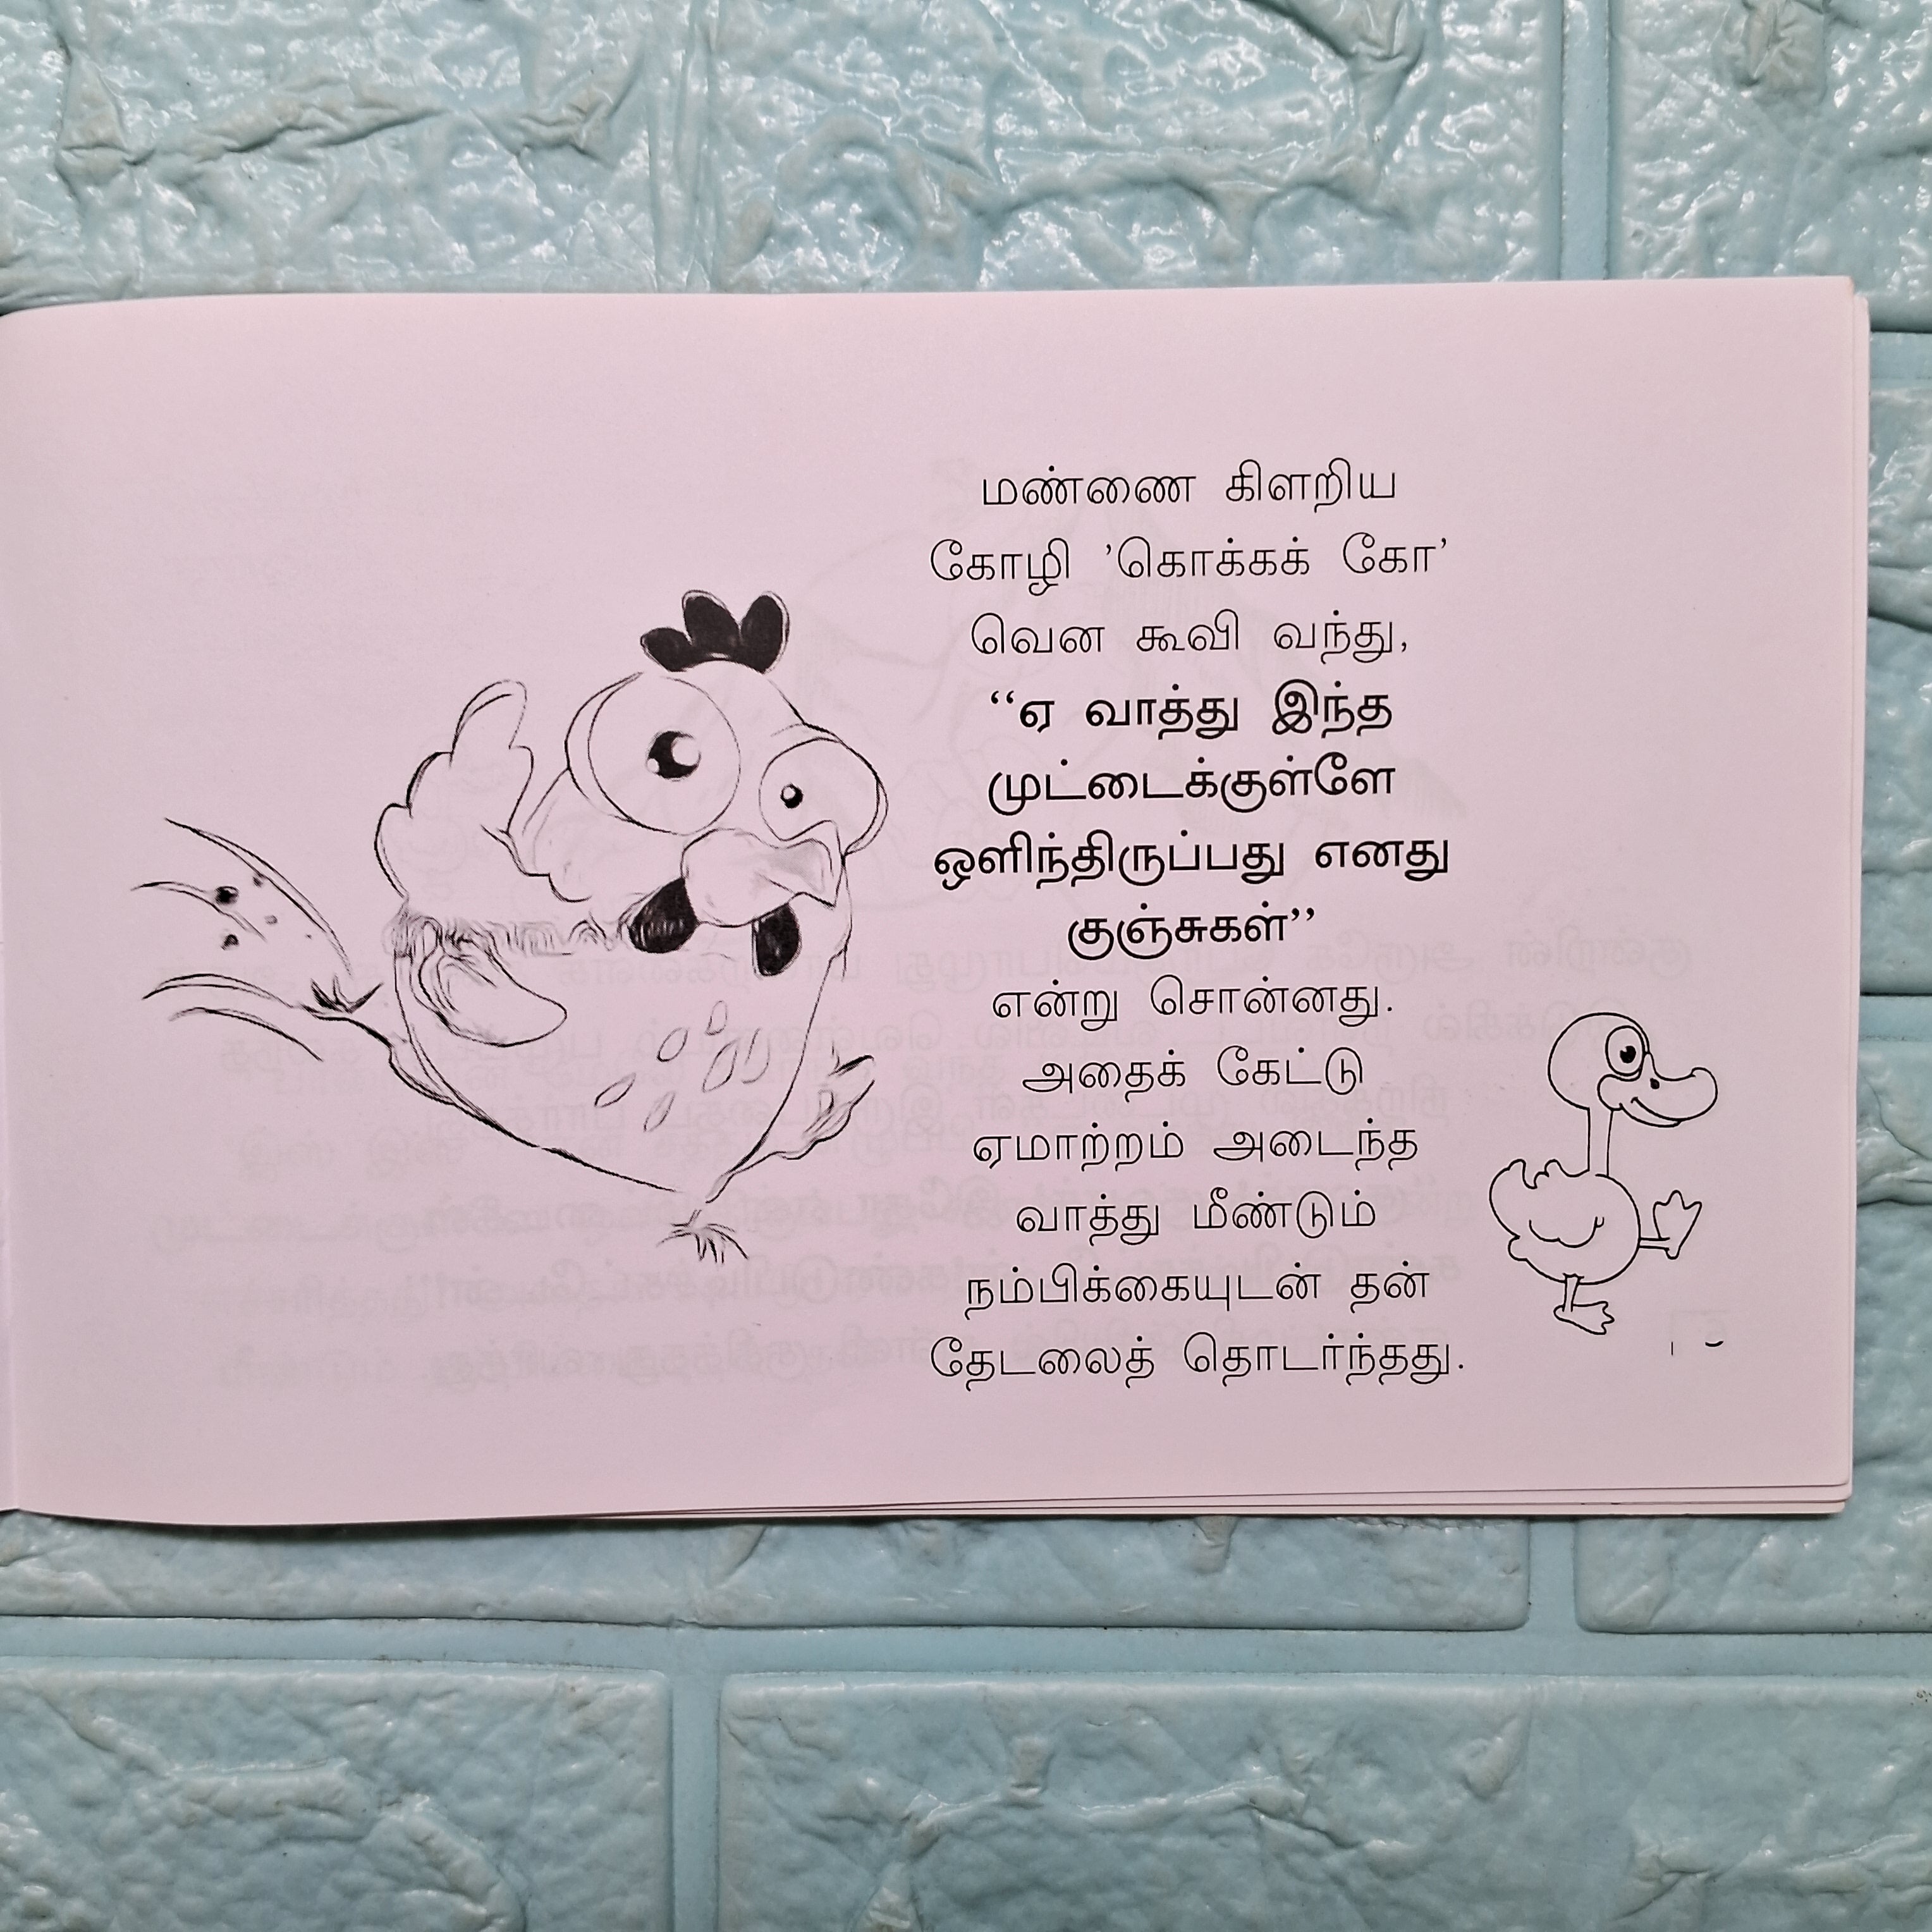 மண்ணை கிளறிய
கோழி ’கொக்கக் கோ’
வென கூவி வந்து,
“ஏ வாத்து இந்த
முட்டைக்குள்ளே
ஒளிந்திருப்பது எனது
குஞ்சுகள்”
என்று சொன்னது.
அதைக் கேட்டு
ஏமாற்றம் அடைந்த
வாத்து மீண்டும்
நம்பிக்கையுடன் தன்
தேடலைத் தொடர்ந்தது.